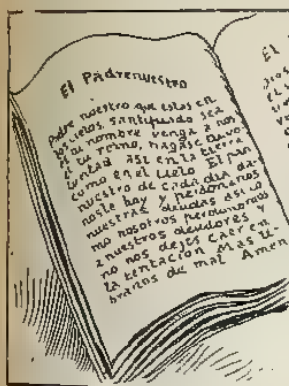 El Padrenuestro
Padre nuestro que estas en
los cielos, santificado sea
el tu nombre venga a nos
el tu reino, hagase tu vo
luntad asi en la tierra
como en el cielo El pan
nuestro de cada dia da-
nosle hoy y perdonanos
nuestras deudas asi co
mo nosotros perdonamos
a nuestros deudores y
no nos dejes caer en
la tentacion Mas li-
branos de mal Amen
El